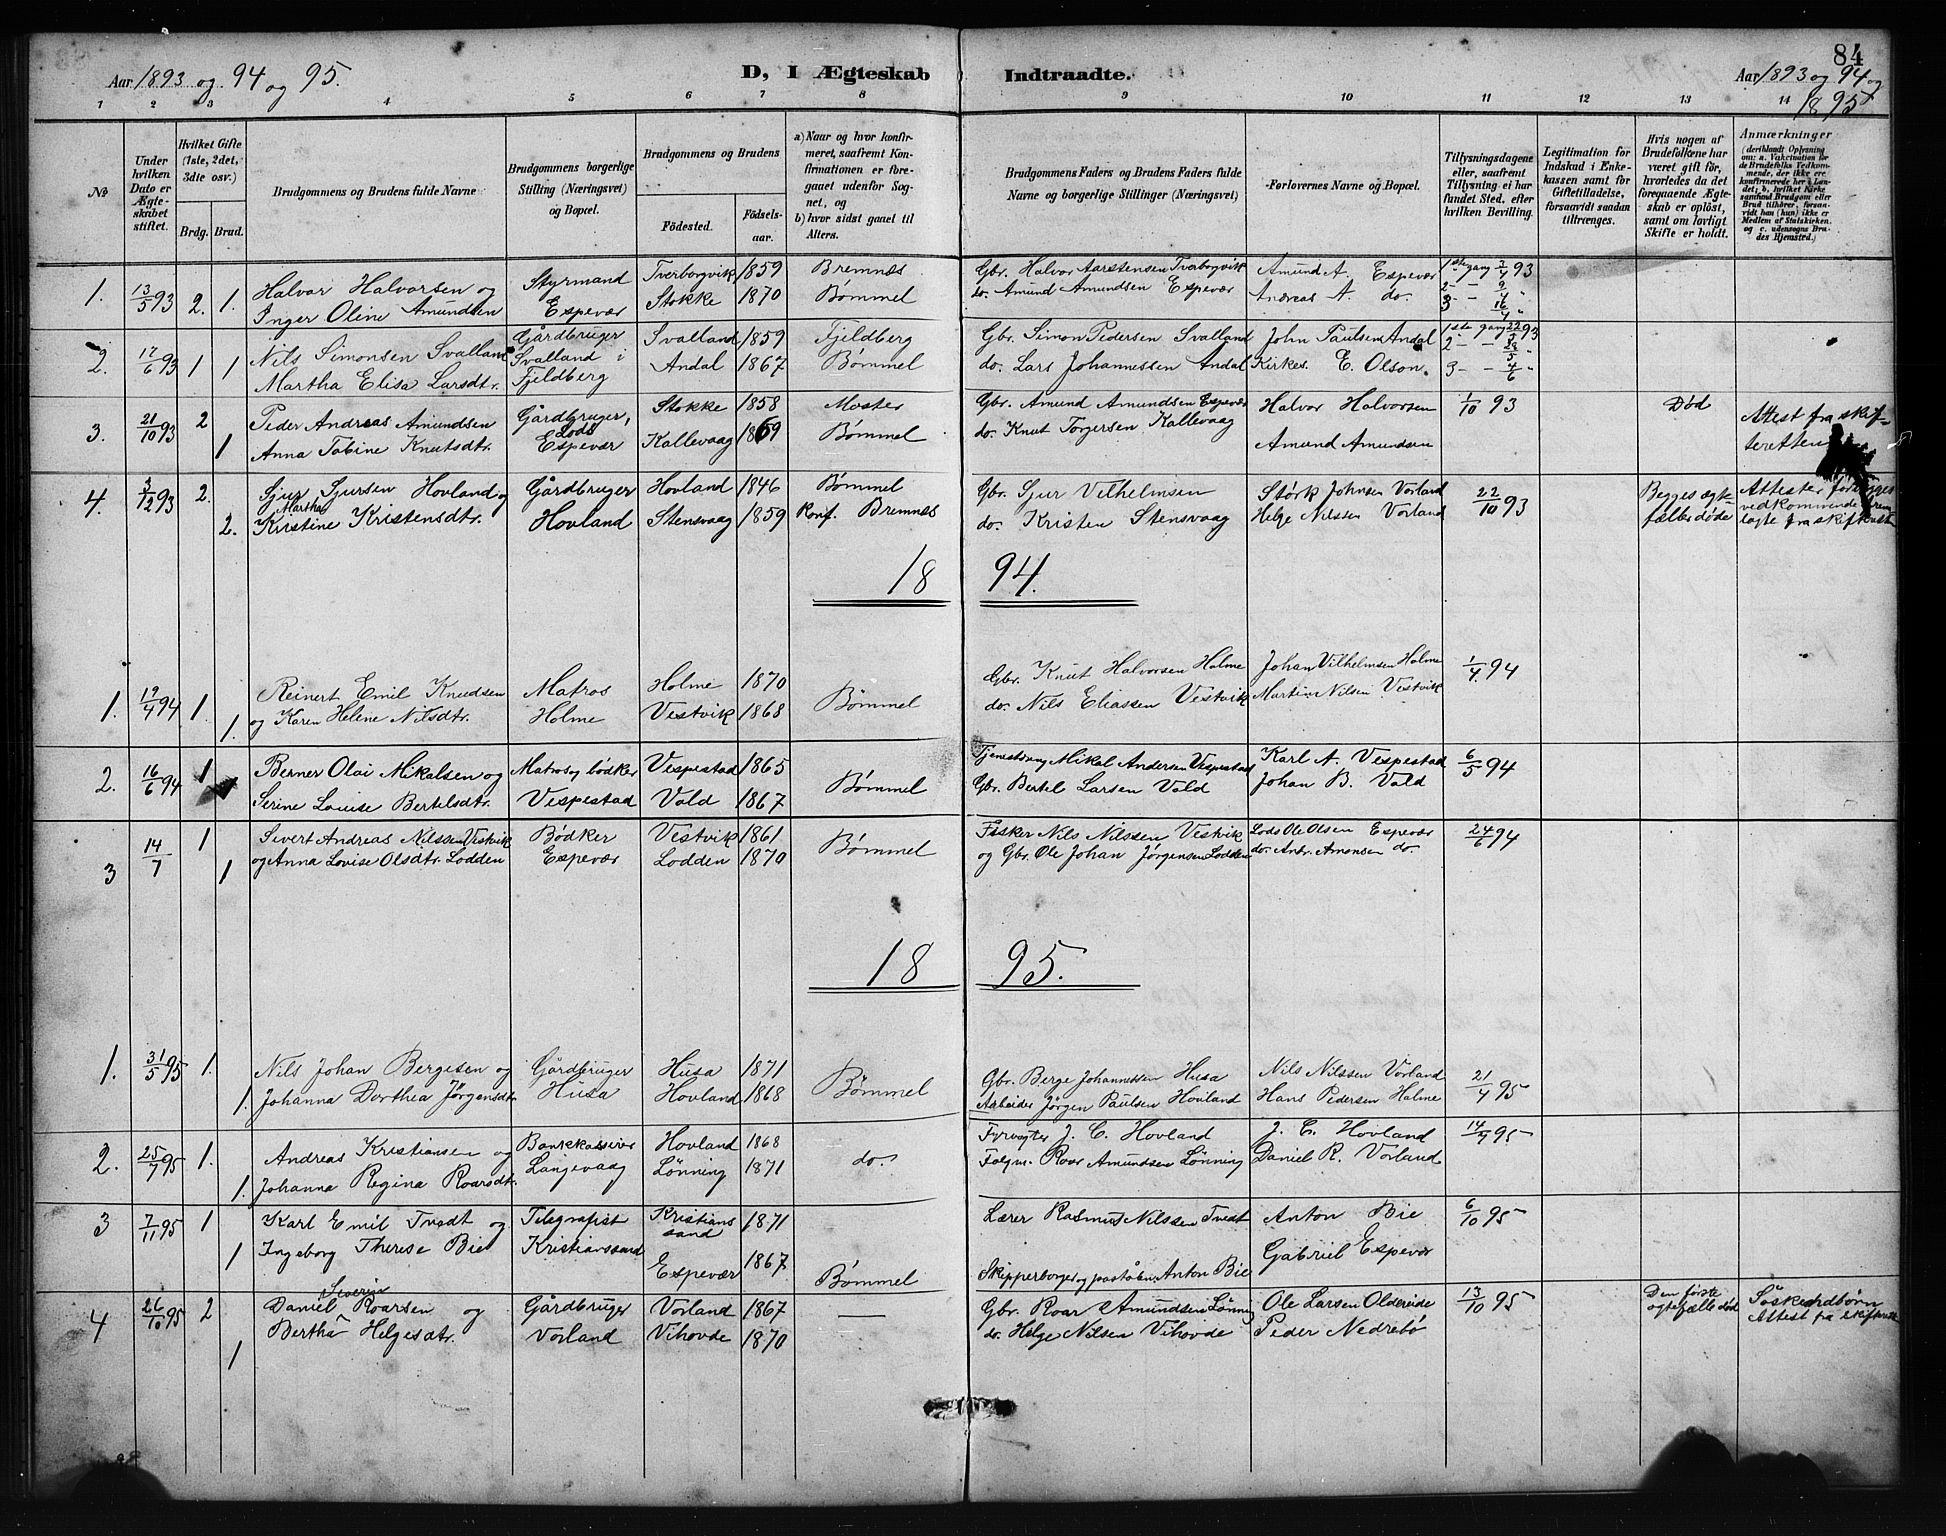 84
Aar 1893 og 94 og 95.
D, I Ægteskab Indtraadte.
Aar 1893 og 94 og
1895
1 2 3 4 5 6 7 8 9 10 11 12 13 14
No
Under hvilken Dato er Ægteskabet stiftet.
Hvilket Gifte (1ste, 2det, 3die osv.)
Brdg. Brud.
Brudgommens og Brudens fulde Navne
Brudgommens borgerlige Stilling (Næringsvei) og Bopæl.
Brudgommens og Brudens
Födested. Födselsaar.
a) Naar og hvor konfirmeret, saafremt Konfirmationen er foregaaet udenfor Sognet, og
b) hvor sidst ganet til Alters.
Brudgommens Faders og Brudens Faders fulde Navne og borgerlige Stillinger (Næringsvei)
Forlovernes Navne og Bopæl.
Tillysningsdagene eller, saafremt Tillysning ei har fundet Sted, efter hvilken Bevilling.
Legitimation for Indskud i Enkekassen samt for Giftetilladelse, forsaavidt saadan tiltrænges.
Hvis nogen af Brudefolkene har været gift för, hvorledes da det foregaaende Ægteskab er oplöst, samt om lovligt Skifte er holdt.
Anmærkninger (deriblandt Oplysning om: a. Vakcination for de Brudefolks Vedkommende, der ikke ere konfirmerede her i Landet; b. hvilket Kirkesamfund Brudgom eller Brud tilhörer, forsaavidt han (hun) ikke er Medlem af Statskirken, og c. udensogns Brudes Hjemsted.)
1. 13/5 93 2. 1. Halvor Halvorsen og Styrmand Tverborgvik 1859 Bremnes Gbr. Halvor Aarstensen Tverborgvik Amund A. Espevær 1ste gang 3/4 93
Inger Oline Amundsen Espevær Stokke 1870 Bømmel do. Amund Amundsen Espevær Andreas A. do. 2 - - 9/4 "
3 - - 16/4 "
2. 17/6 93 1 1 Nils Simonsen Svalland Gårdbruger Svalland 1859 Fjeldberg Gbr. Simon Pedersen Svalland John Paulsen Andal 1ste gang 22/5 93
Martha Elisa Larsdtr. Svalland i Fjeldberg Andal 1867 Bømmel do. Lars Johannessen Andal Kirkes. E. Olson. 2 - - 28/5 "
3 - - 4/6 "
3. 21/10 93 2 Peder Andreas Amundsen Gårdbruger, Stokke 1858 Moster Gbr. Amund Amundsen Espevær Halvor Halvorsen 1/10 93 Död Attest fra skif-
1 Anna Tobine Knutsdtr. Lods Espevær Kallevaag 1869 Bømmel do. Knut Torgersen Kallevaag Amund Amundsen teretten
4. 3/12 93 2. Sjur Sjursen Hovland og Gårdbruger Hovland 1846 Bømmel Gbr. Sjur Vilhelmsen Störk Johnsen Vorland 22/10 93 Begges ægte- Attester
2. Martha Kristine Kristensdtr. Hovland Stensvaag 1859 Konf. Bremnes do. Kristen Stensvaag Helge Nilssen Vorland fæller döde vedkommende
lagte fra skifteret
18 94.
1. 19/4 94 1. Reinert Emil Knudsen Matros Holme 1870 Bømmel Gbr. Knut Halvorsen Holme Johan Vilhelmsen Holme 1/4 94
1. og Karen Helene Nilsdtr. Holme Vestvik 1868 do. Nils Eliassen Vestvik Martin Nilsen Vestvik
2. 16/6 94 1 Berner Olai Mikalsen og Matros og bödker Vespestad 1865 Bømmel Tjenestdreng Mikal Andersen Vespestad Karl A. Vespestad 6/5 94
Serine Louise Bertelsdtr. Vespestad Vold 1867 Gbr. Bertel Larsen Vold Johan B. Vold
3 14/7 1 Sivert Andreas Nilssen Vestvik Bödker Vestvik 1861. Bømmel Fisker Nils Nilssen Vestvik Lods Ole Olsen Espevær 24/6 94
1 og Anna Lovise Olsdtr. Lodden Espevær Lodden 1870 og Gbr. Ole Johan Jørgensen Lodden do. Andr. Amonsen do.
18 95.
1. 31/5 95 1. Nils Johan Bergesen og Gårdbruger Husa 1871 Bømmel Gbr. Berge Johannessen Husa Nils Nilssen Vorland 21/4 95
1. Johanna Dorthea Jørgensdtr. Husa Hovland 1868 Arbeider Jørgen Paulsen Hovland Hans Pedersen Holme
2. 25/7 95 1. Andreas Kristiansen og Bankkasserer Hovland 1868 do. Fyrvogter J. C. Hovland J. C. Hovland 14/7 95
1. Johanna Regina Roarsdtr. Langevaag Lönning 1871 Roar Amundsen Lönning Daniel R. Vorland
3 7/11 95 1 Karl Emil Tvedt og Telegrafist Kristianssand 1871 Lærer Rasmus Nilssen Tvedt Anton Bie 6/10 95
1 Ingeborg Therese Bie Kristianssand Espevær 1867 Bømmel Skipperborger og poståbn. Anton Bie Gabriel Espevær
4 26/10 95 2 Daniel Severin Roarsen og Gårdbruger Vorland 1867 — Gbr. Roar Amundsen Lönning Ole Larsen Oldereide 13/10 95 Den förste Söskendbörn
1 Bertha Helgesdtr. Vorland Vihovde 1870 do. Helge Nilsen Vihovde Peder Nedrebö egtefælle död Attest fra skifteret